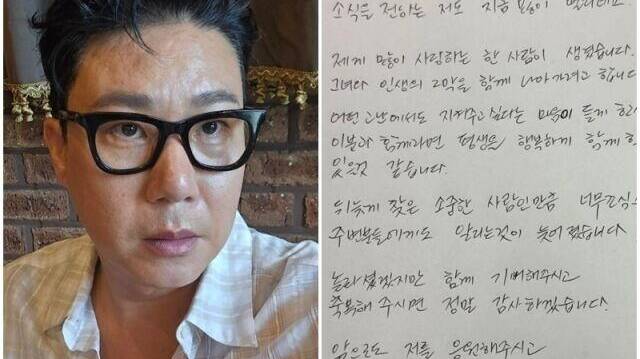 소식을 전하는 저도 지금 많이 떨리네요.
제게 많이 사랑하는 한 사람이 생겼습니다
그녀와 인생의 2막을 함께 나아가려고 합니다
어떤 고난에서도 지켜주고 싶다는 마음이 들게 한
이분과 함께라면 평생을 행복하게 함께 할
있을것 같습니다.
뒤늦게 찾은 소중한 사람인만큼 너무 조심스
주변분들에게도 알리는것이 늦어졌습니다
놀라셨겠지만 함께 기뻐해주시고
축복해 주시면 정말 감사하겠습니다.
앞으로도 저를 응원해주시고